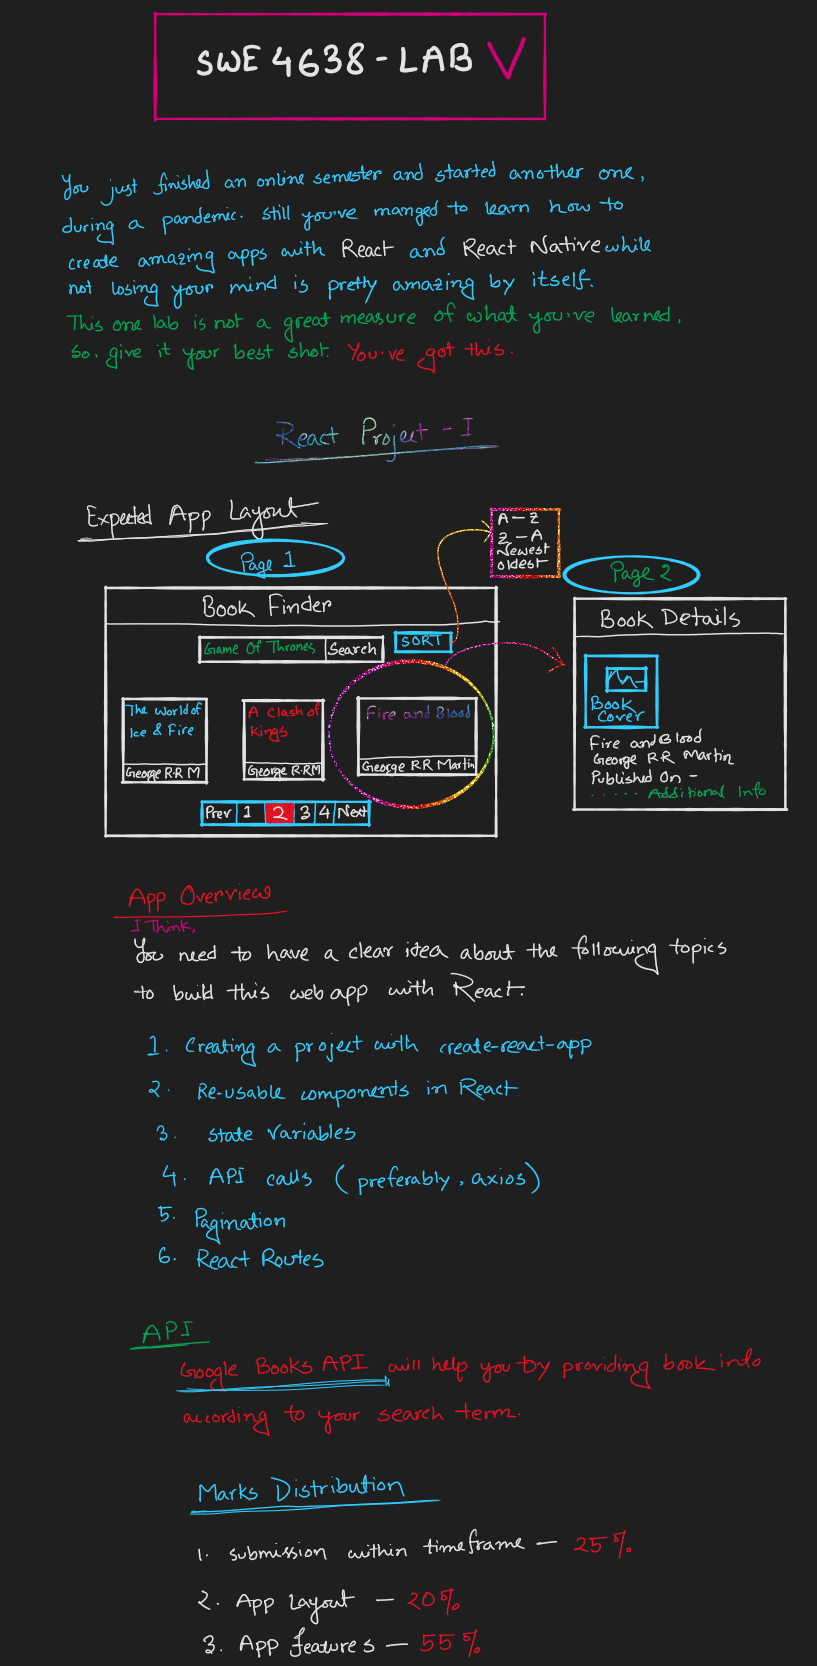 SWE 4638 - LAB V
You just finished an online semester and started another one,
during a pandemic. still you've manged to learn how to
create amazing apps with React and React Native while
not losing your mind is pretty amazing by itself.
This one lab is not a great measure of what you've learned,
So, give it your best shot. You've got this.
React Project - I
Expected App Layout
Page 1
A - Z
Z - A
Newest
oldest
Page 2
Book Finder
Game Of Thrones
Search
SORT
The World of
Ice & Fire
George R.R M
A Clash of
Kings
George R.RM
Fire and Blood
George RR Martin
Prev 1 2 3 4 Next
Book Details
Book
Cover
Fire and Blood
George RR Martin
Published On -
..... Additional Info
App Overview
I Think,
You need to have a clear idea about the following topics
to build this web app with React.
1. Creating a project with create-react-app
2. Re-usable components in React
3. State Variables
4. API calls (preferably, axios)
5. Pagination
6. React Routes
API
Google Books API will help you by providing book info
according to your search term.
Marks Distribution
1. submission within timeframe - 25%
2. App Layout - 20%
3. App features - 55%